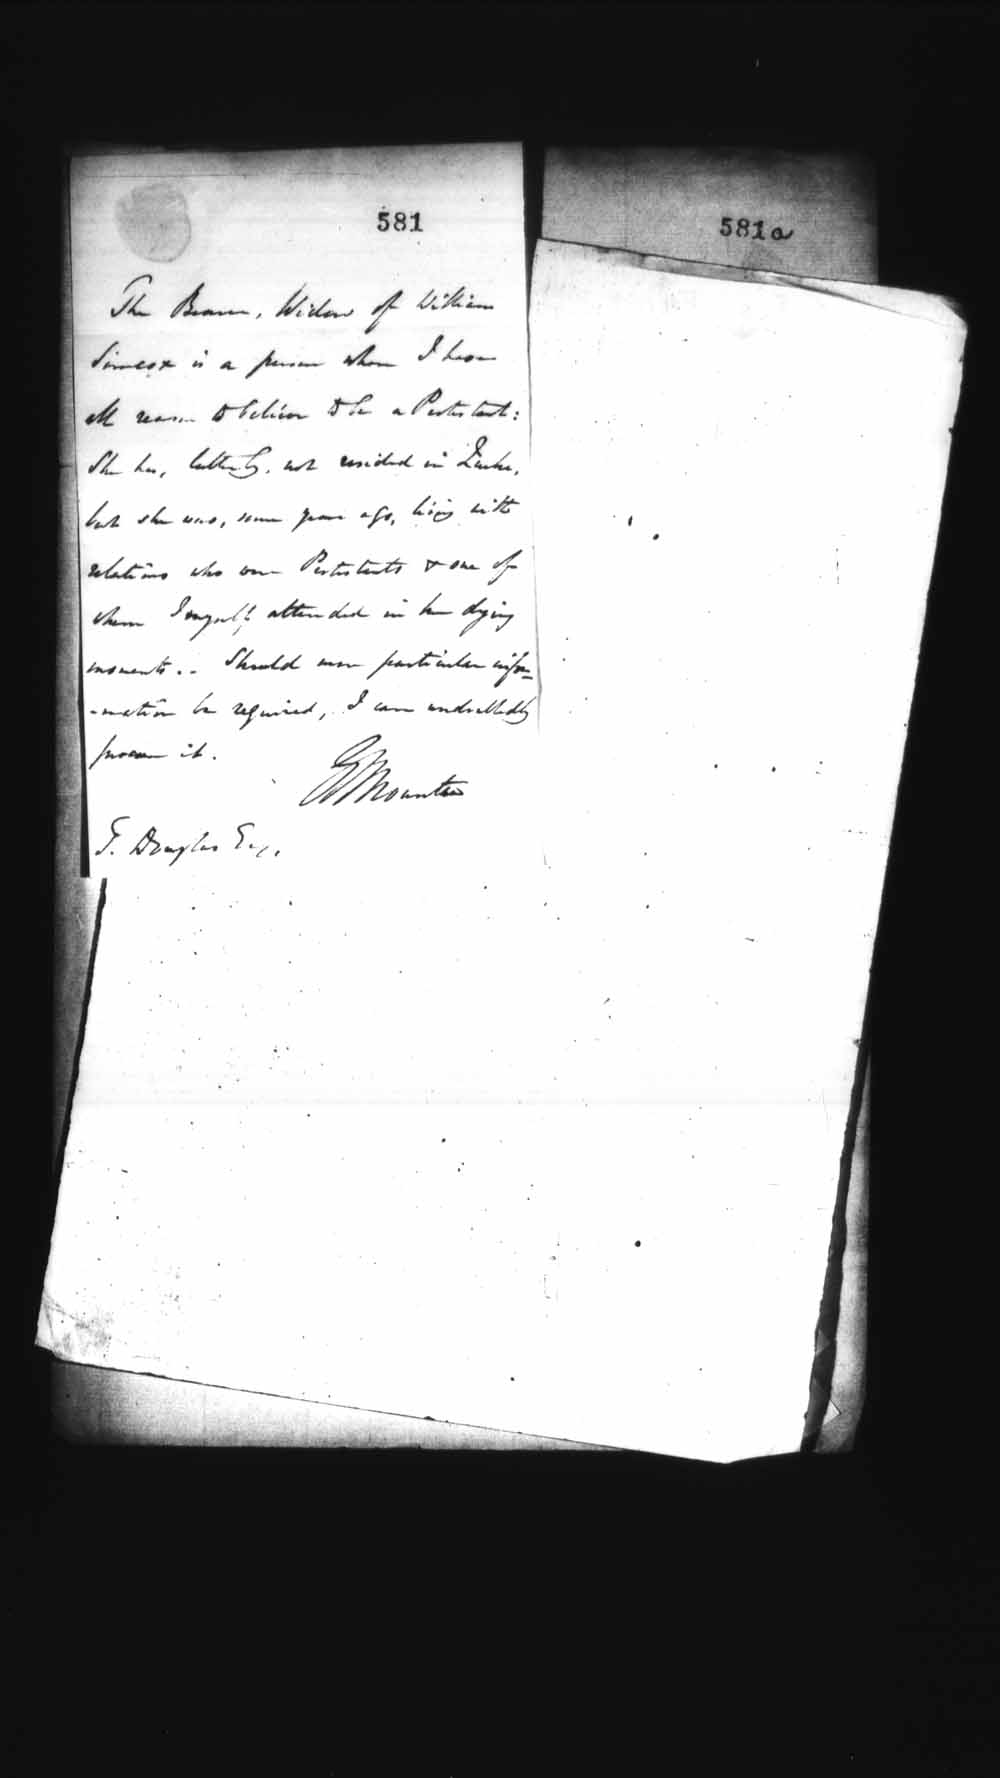 581
581a
The Bearer, Widow of William
Simcox is a person whom I have
all reason to believe to be a Protestant:
She has, latterly, not resided in Quebec,
but she was, some years ago, living with
relations who were Protestants & one of
whom I myself attended in her dying
moments.. Should more particular infor=
-mation be required, I can undoubtedly
procure it.
G J Mountain
T. Douglas Esq.